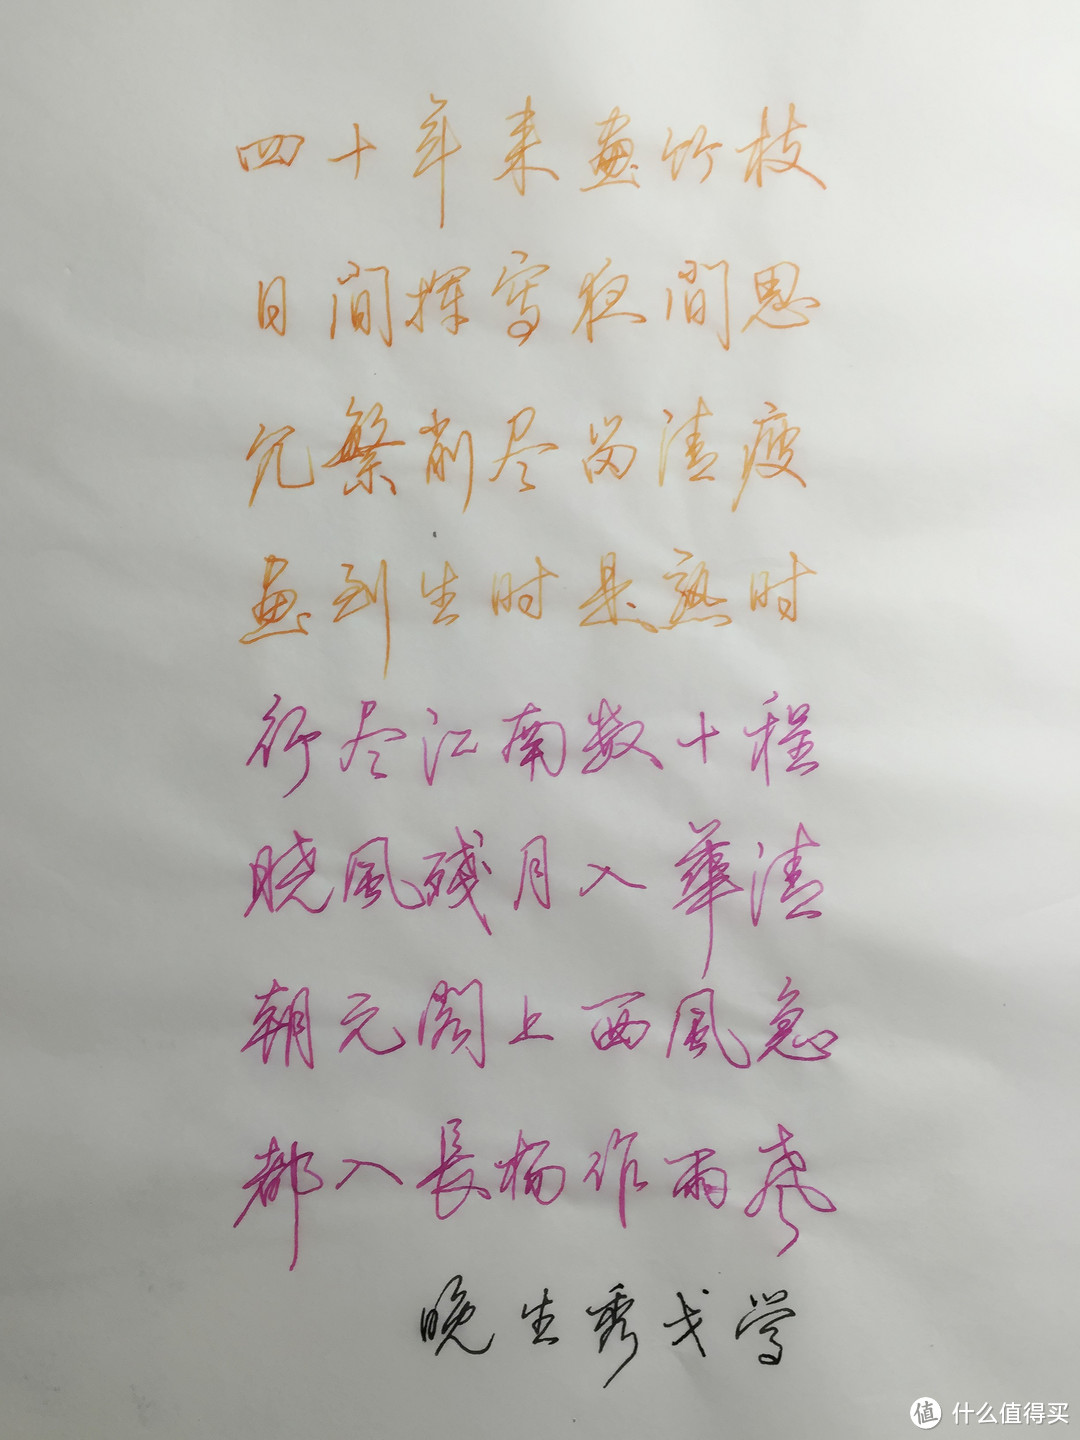 四十年来畫竹枝
日間揮寫夜間思
冗繁削尽留清瘦
畫到生时是熟时
行尽江南数十程
晓風残月入華清
朝元閣上西風急
都入長楊作雨声
晚生秀戈学
值 什么值得买